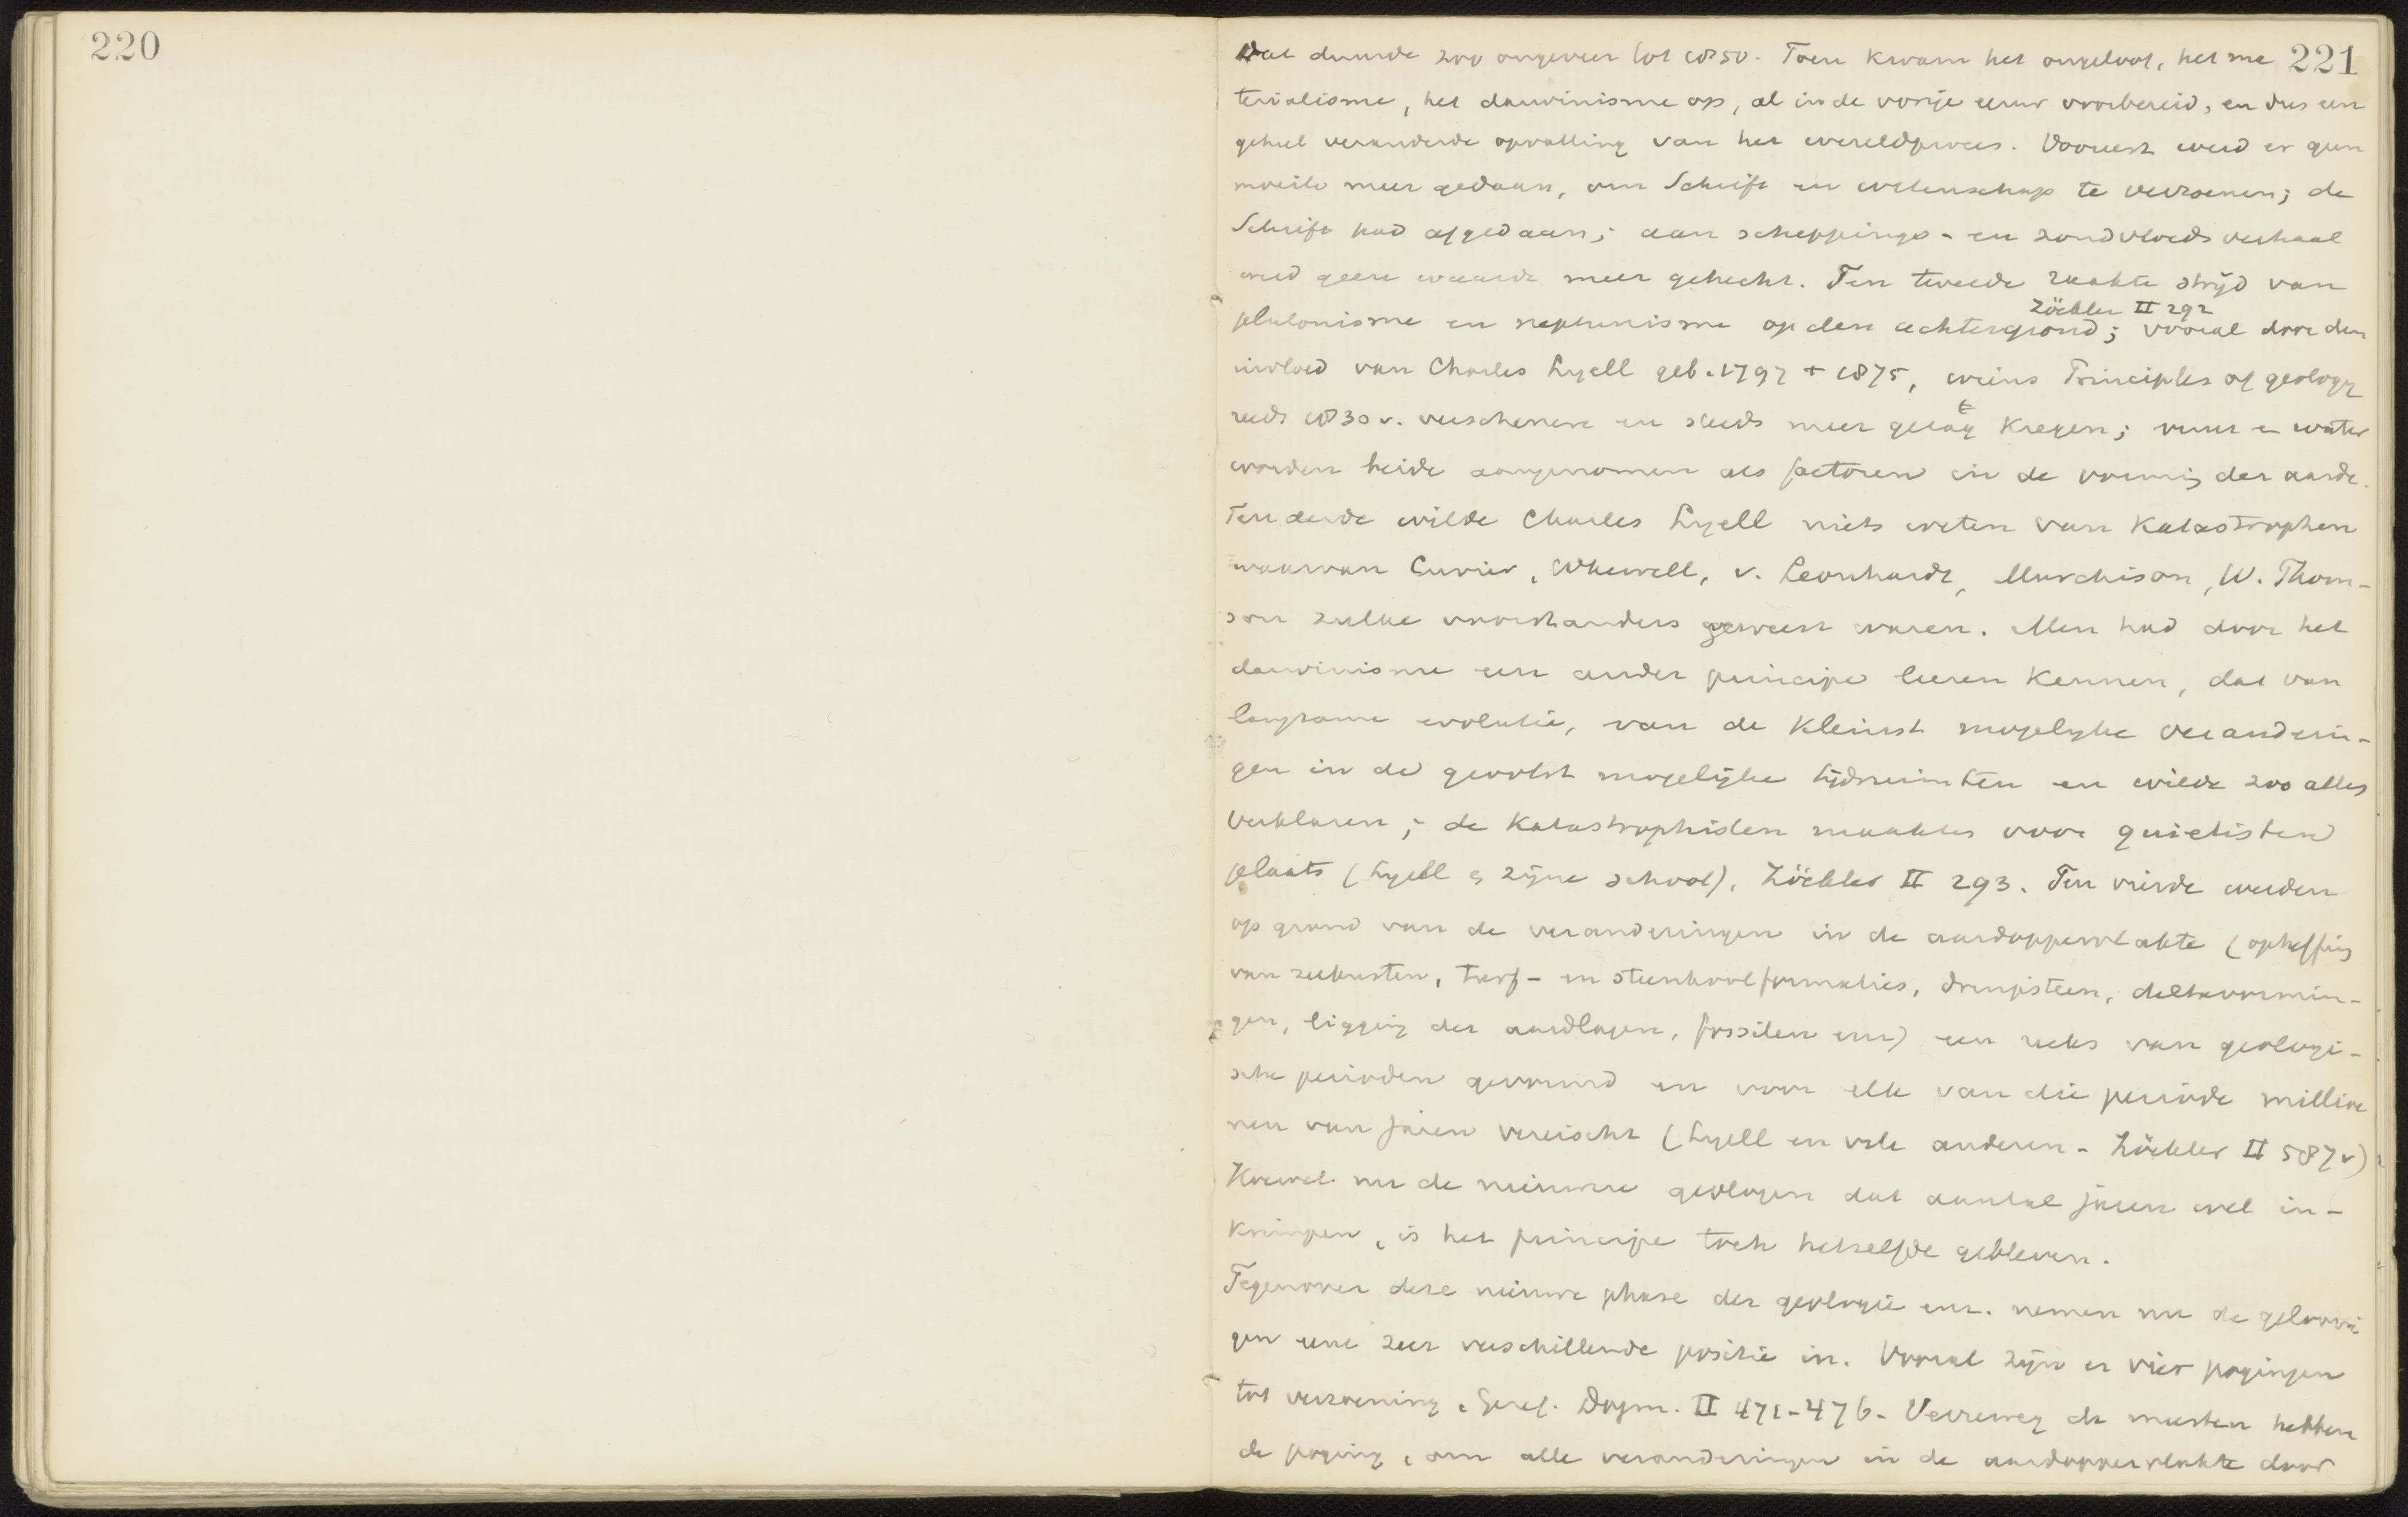 220
221
Dat duurde zoo ongeveer tot 1850. Toen kwam het ongeloof, het ma
terialisme, het darwinisme op, al in de vorige eeuw voorbereid, en dus een
geheel veranderde opvatting van het wereldproces. Vooreerst werd er geen
moeite meer gedaan, om Schrift en wetenschap te verzoenen; de
Schrift had afgedaan; aan scheppings- en zondvloedsverhaal
werd geen waarde meer gehecht. Ten tweede raakte strijd van
Zöckler II 292
plutonisme en neptunisme op den achtergrond; vooral door den
invloed van Charles Lyell geb. 1797 † 1875, wiens Principles of geology
reeds 1830 v. verschenen en steeds meer gezag kregen; vuur en water
worden beide aangenomen als factoren in de vorming der aarde.
Ten derde wilde Charles Lyell niets weten van Katastrophen
waarvan Cuvier, Whewell, v. Leonhardt, Murchison, W. Thom-
son zulke voorstanders geweest waren. Men had door het
darwinisme een ander principe leeren kennen, dat van
langzame evolutie, van de kleinst mogelijke veranderin-
gen in de grootst mogelijke tijdsruimten en wilde zoo alles
verklaren; de Katastrophisten maakten voor quietisten
plaats (Lyell en zijne school), Zöckler II 293. Ten vierde werden
op grond van de veranderingen in de aardoppervlakte (opheffing
van zeekusten, turf- en steenkoolformaties, druipsteen, deltavormin-
gen, ligging der aardlagen, fossilen enz) een reeks van geologi-
sche perioden gevormd en voor elk van die periode millioe
nen van jaren vereischt (Lyell en vele anderen - Zöckler II 587v)
Hoewel nu de nieuwere geologen dat aantal jaren wel in-
krimpen, is het principe toch hetzelfde gebleven.
Tegenover deze nieuwe phase der geologie enz. nemen nu de geloovi
gen eene zeer verschillende positie in. Vooral zijn er vier pogingen
tot verzoening, Geref. Dogm. II 471-476. Verreweg de meesten hebben
de poging, om alle veranderingen in de aardoppervlakte door